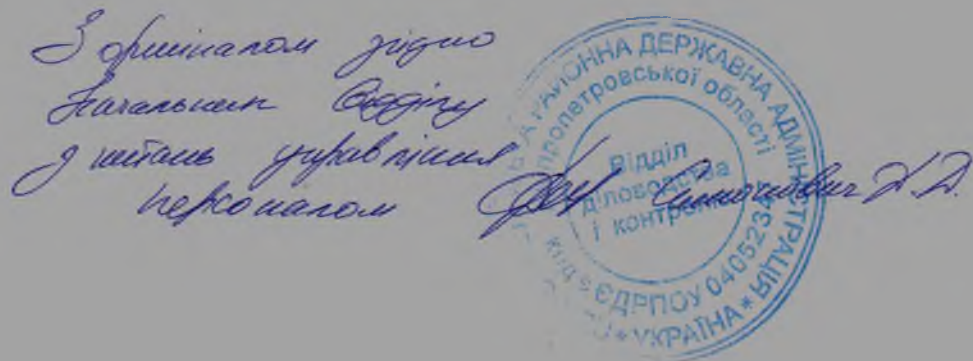 З оригіналом згідно
Начальник відділу
з питань управління
персоналом
РАЙОННА ДЕРЖАВНА АДМІНІСТРАЦІЯ
Дніпропетровської області
Відділ
діловодства
і контролю
код ЄДРПОУ 04052234
* УКРАЇНА *